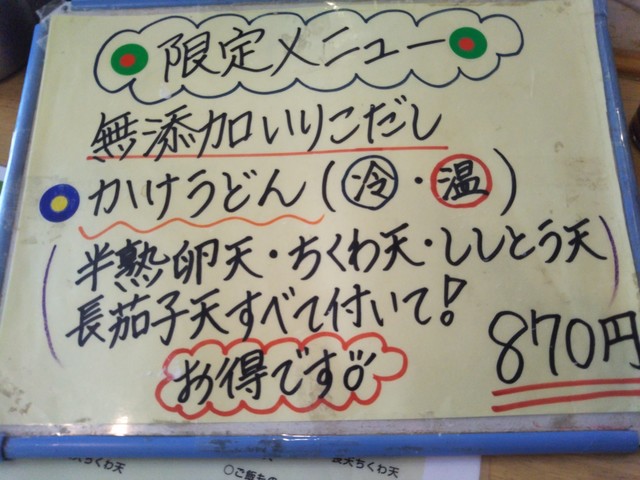 限定メニュー
無添加いりこだし
かけうどん(冷・温)
(半熟卵天・ちくわ天・ししとう天
長茄子天すべて付いて!)
お得です!!
870円
ちくわ天
○ご飯もの
長天ちくわ天